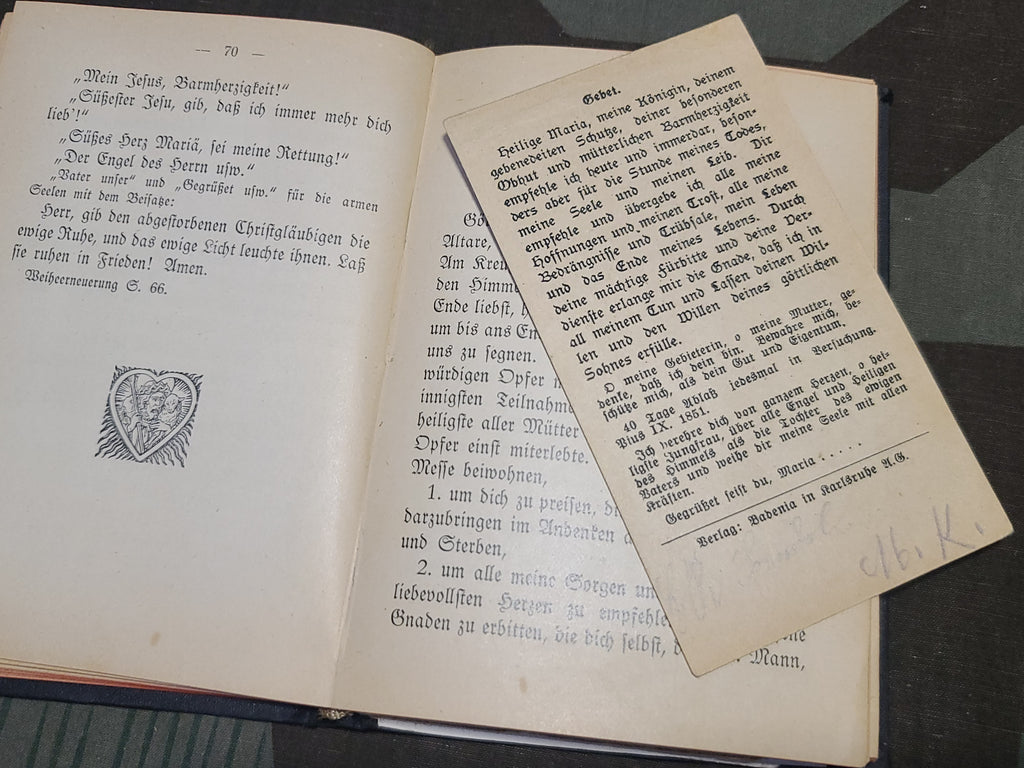 — 70 —
„Mein Jesus, Barmherzigkeit!"
„Süßester Jesu, gib, daß ich immer mehr dich
lieb'!"
„Süßes Herz Mariä, sei meine Rettung!"
„Der Engel des Herrn usw."
„Vater unser" und „Gegrüßet usw." für die armen
Seelen mit dem Beisatze:
Herr, gib den abgestorbenen Christgläubigen die
ewige Ruhe, und das ewige Licht leuchte ihnen. Laß
sie ruhen in Frieden! Amen.
Weiheerneuerung S. 66.
Altare,
Am Kreu
den Himme
Ende liebst,
um bis ans En
uns zu segnen.
würdigen Opfer
innigsten Teilnahm
heiligste aller Mütter
Opfer einst miterlebte.
Messe beiwohnen,
1. um dich zu preisen,
darzubringen im Andenken
und Sterben,
2. um alle meine Sorgen un
liebevollsten Herzen zu empfehle
Gnaden zu erbitten, die dich selbst,
Mann,
Gebet.
Heilige Maria, meine Königin, deinem
gebenedeiten Schutze, deiner besonderen
Obhut und mütterlichen Barmherzigkeit
empfehle ich heute und immerdar, beson-
ders aber für die Stunde meines Todes,
meine Seele und meinen Leib. Dir
empfehle und übergebe ich alle meine
Hoffnungen und meinen Trost, alle meine
Bedrängnisse und Trübsale, mein Leben
und das Ende meines Lebens. Durch
deine mächtige Fürbitte und deine Ver-
dienste erlange mir die Gnade, daß ich in
all meinem Tun und Lassen deinen Wil-
len und den Willen deines göttlichen
Sohnes erfülle.
O meine Gebieterin, o meine Mutter, ge-
denke, daß ich dein bin. Bewahre mich, be-
schütze mich, als dein Gut und Eigentum.
40 Tage Ablaß jedesmal in Versuchung.
Pius IX. 1851.
Ich verehre dich von ganzem Herzen, o hei-
ligste Jungfrau, über alle Engel und Heiligen
des Himmels als die Tochter des ewigen
Vaters und weihe dir meine Seele mit allen
Kräften.
Gegrüßet seist du, Maria . . . . .
Verlag: Badenia in Karlsruhe A.G.
M. K.